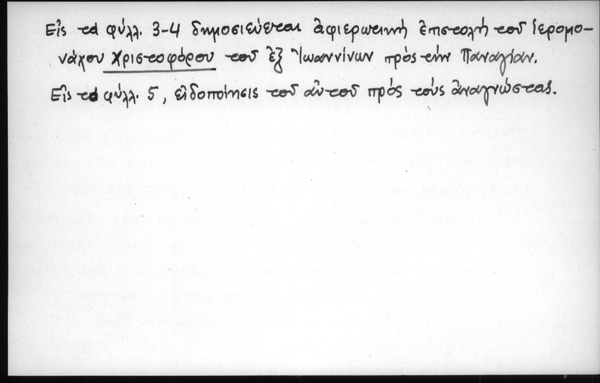 Εἰς τὰ φύλλ. 3-4 δημοσιεύεται ἀφιερωτική ἐπιστολή τοῦ ἱερομο-
νάχου Χριστοφόρου τοῦ ἐξ Ἰωαννίνων πρὸς τήν Παναγίαν.
Εἰς τὰ φύλλ. 5, εἰδοποίησις τοῦ αὐτοῦ πρὸς τοὺς ἀναγνώστας.